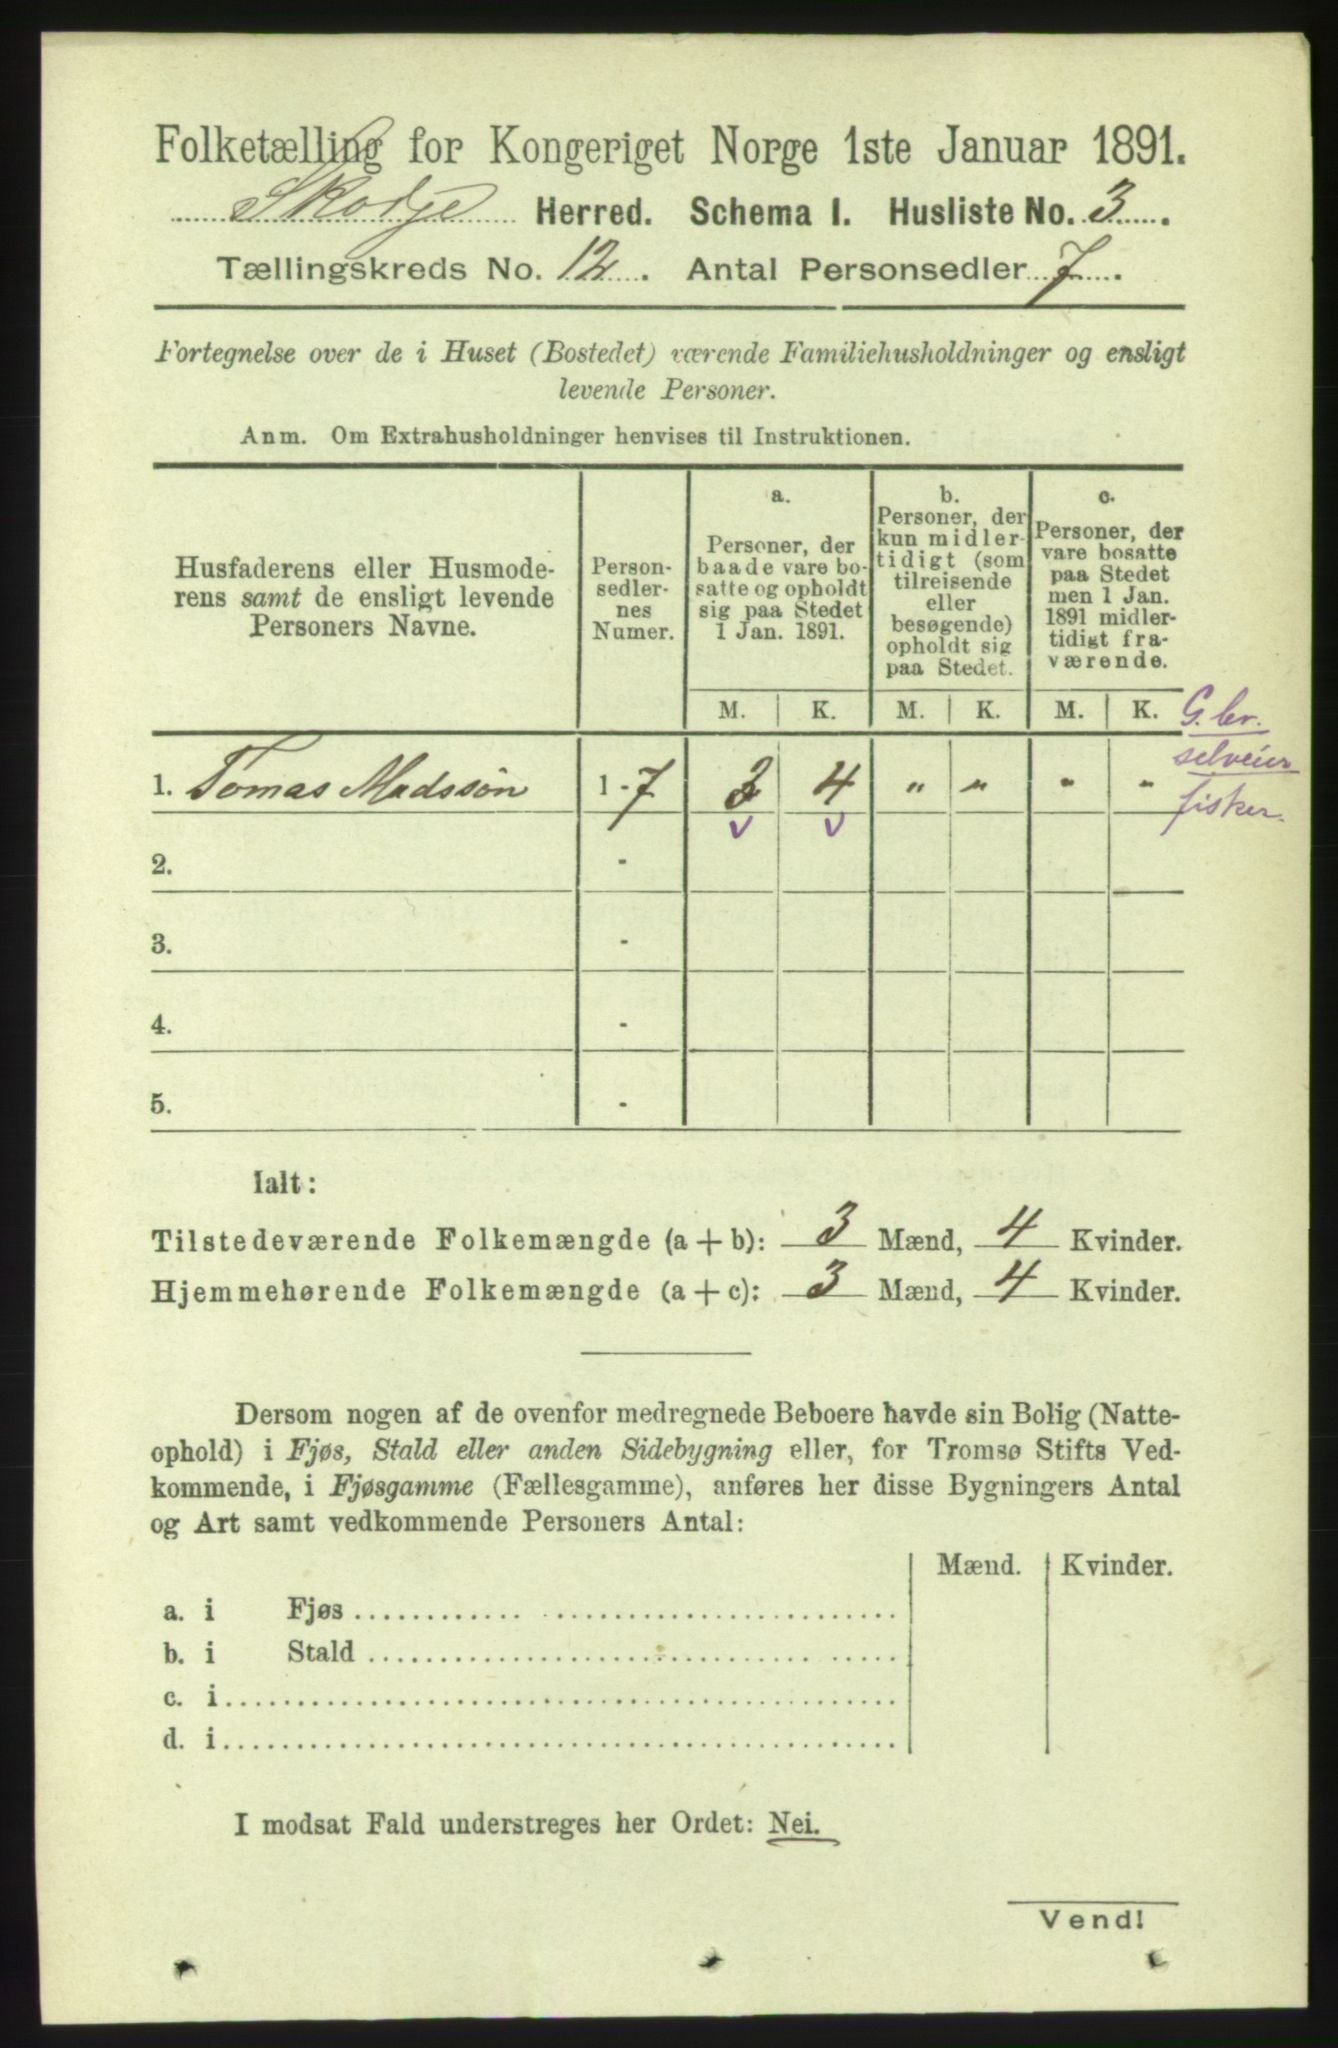 Folketælling for Kongeriget Norge 1ste Januar 1891.
Skodje Herred. Schema I. Husliste No. 3.
Tællingskreds No. 12. Antal Personsedler 7.
Fortegnelse over de i Huset (Bostedet) værende Familiehusholdninger og ensligt
levende Personer.
Anm. Om Extrahusholdninger henvises til Instruktionen.
Husfaderens eller Husmode-
rens samt de ensligt levende
Personers Navne.
Person-
sedler-
nes
Numer.
a.
Personer, der
baade vare bo-
satte og opholdt
sig paa Stedet
1 Jan. 1891.
b.
Personer, der
kun midler-
tidigt (som
tilreisende
eller
besøgende)
opholdt sig
paa Stedet.
c.
Personer, der
vare bosatte
paa Stedet
men 1 Jan.
1891 midler-
tidigt fra-
værende.
M. K. M. K. M. K.
G. br.
selveier
fisker.
1. Tomas Madssøn 1-7 3 4 " " " "
v v
2. -
3. -
4. -
5. -
Ialt:
Tilstedeværende Folkemængde (a + b): 3 Mænd, 4 Kvinder.
Hjemmehørende Folkemængde (a + c): 3 Mænd, 4 Kvinder.
Dersom nogen af de ovenfor medregnede Beboere havde sin Bolig (Natte-
ophold) i Fjøs, Stald eller anden Sidebygning eller, for Tromsø Stifts Ved-
kommende, i Fjøsgamme (Fællesgamme), anføres her disse Bygningers Antal
og Art samt vedkommende Personers Antal:
Mænd. Kvinder.
a. i Fjøs
b. i Stald
c. i
d. i
I modsat Fald understreges her Ordet: Nei.
Vend!